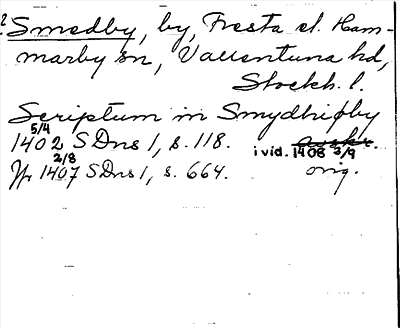 2 Smedby, by, Fresta el. Ham-
marby sn, Vallentuna hd,
Stockh. l.
Scriptum in Smydhiþby
1402 5/4 SDns 1, s. 118. i vid. 1408 3/9
1407 2/8 SDns 1, s. 664. orig.